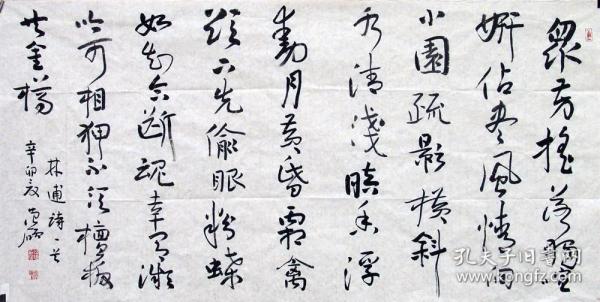 众芳摇落独暄
妍占尽风情向
小園疏影横斜
水清浅暗香浮
動月黄昏霜禽
欲下先偷眼粉蝶
如知合断魂幸有微
吟可相狎不須檀板
共金樽
林逋詩一首
辛卯夏
孔夫子旧书网
www.kongfz.com